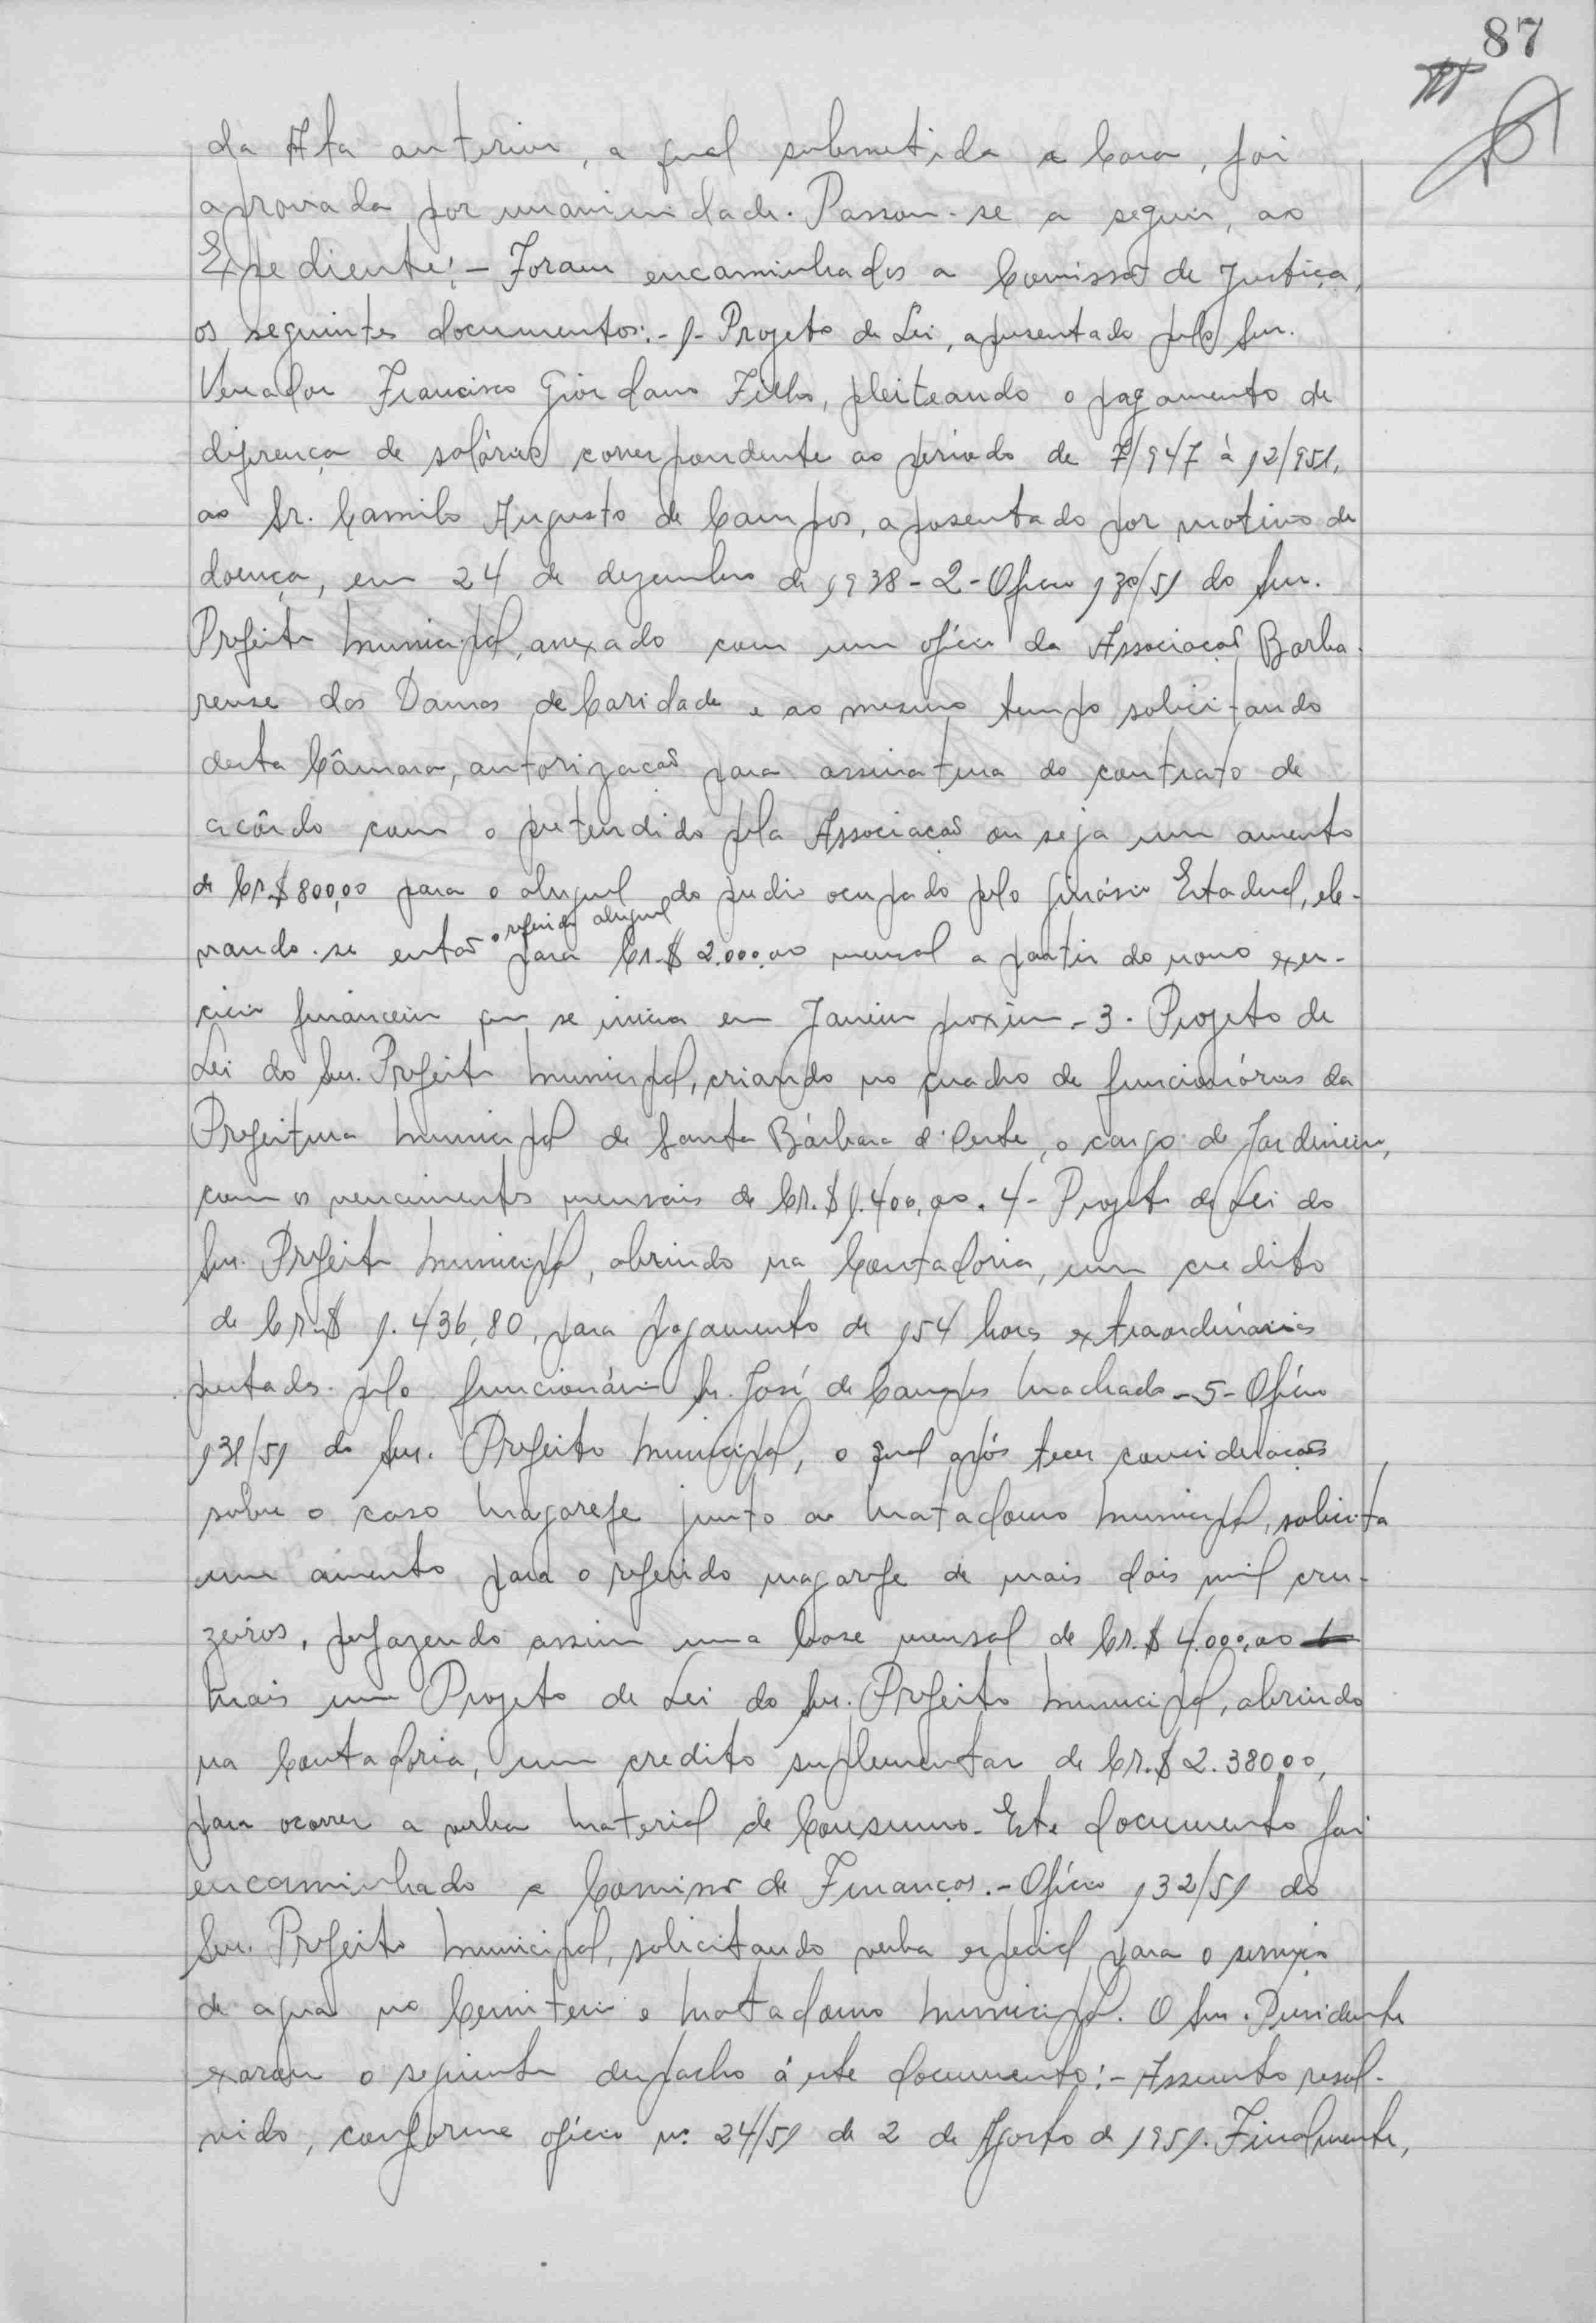 87
da Ata anterior, a qual submetida a Casa, foi
aprovada por unanimidade. Passou-se a seguir, ao
Expediente:- Foram encaminhados a Comissão de Justiça,
os seguintes documentos:- 1- Projeto de Lei, apresentado pelo Snr.
Vereador Francisco Giordano Filho, pleiteando o pagamento de
diferença de salários correspondente ao periodo de 7/947 à 12/951,
ao Sr. Camilo Augusto de Campos, aposentado por motivo de
doença, em 24 de dezembro de 1938 - 2 - Oficio 130/51 do Snr.
Prefeito Municipal, anexado com um ofício da Associação Barba-
rense das Damas de Caridade e ao mesmo tempo solicitando
desta Câmara, autorização para assinatura do contrato de
acôrdo com o pretendido pela Associação ou seja um aumento
de Cr.$ 800,00 para o aluguel do predio ocupado pelo Ginásio Estadual, ele-
vando-se então o referido aluguel para Cr.$ 2.000,00 mensal a partir do novo exer-
cicio financeiro que se inicia em Janeiro proximo - 3 - Projeto de
Lei do Snr. Prefeito Municipal, criando no quadro de funcionários da
Prefeitura Municipal de Santa Bárbara d'Oeste, o cargo de Jardineiro,
com os vencimentos mensais de Cr.$ 1.400,00. 4 - Projeto de Lei do
Snr. Prefeito Municipal, abrindo na Contadoria, um credito
de Cr.$ 1.436,80, para pagamento de 154 horas extraordinárias
prestadas pelo funcionário Sr. José de Campos Machado - 5 - Ofício
131/51 do Snr. Prefeito Municipal, o qual após tecer considerações
sobre o caso Magarefe junto ao Matadouro Municipal, solicita
um aumento para o referido magarefe de mais dois mil cru-
zeiros, perfazendo assim uma base mensal de Cr.$ 4.000,00
Mais um Projeto de Lei do Snr. Prefeito Municipal, abrindo
na Contadoria, um credito suplementar de Cr.$ 2.380,00,
para ocorrer a verba Material de Consumo. Este documento foi
encaminhado a Comissão de Finanças. - Ofício 132/51 do
Snr. Prefeito Municipal, solicitando verba especial para o serviço
de agua no Cemiterio e Matadouro Municipal. O Snr. Presidente
exarou o seguinte despacho á este documento:- Assunto resol-
vido, conforme ofício nº 24/51 de 2 de Agosto de 1951. Finalmente,